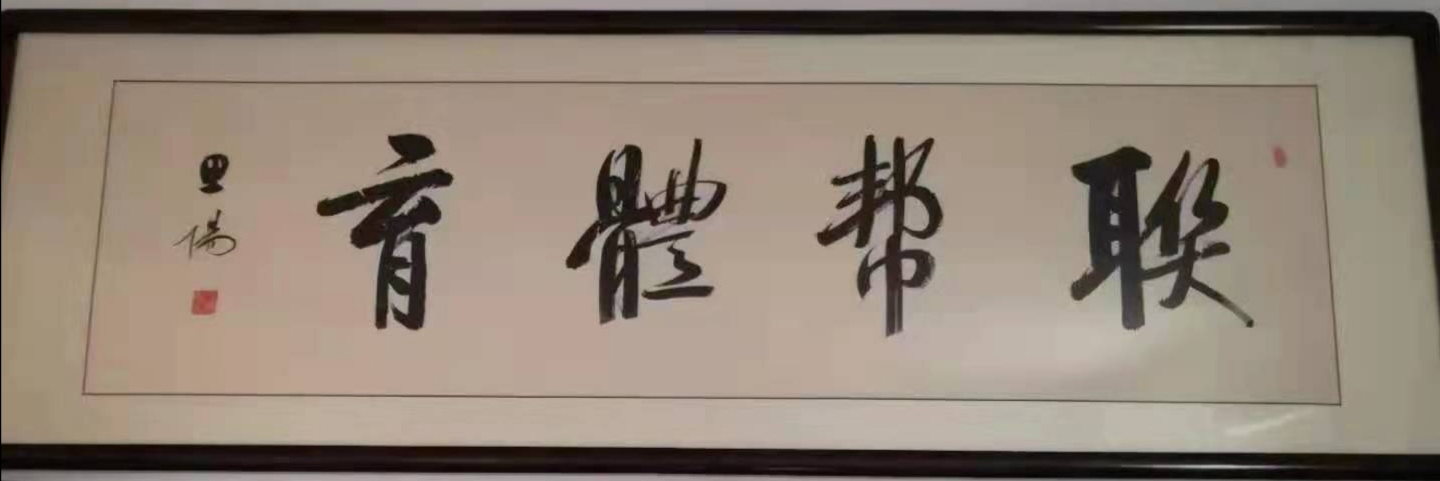 联帮體育
里陽